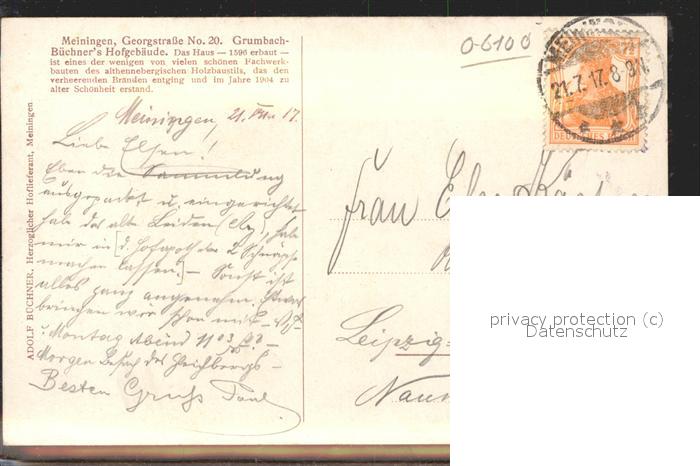 Meiningen, Georgstraße No. 20. Grumbach-
Büchner's Hofgebäude. Das Haus — 1596 erbaut —
ist eines der wenigen von vielen schönen Fachwerk-
bauten des althennebergischen Holzbaustils, das den
verheerenden Bränden entging und im Jahre 1904 zu
alter Schönheit erstand.
ADOLF BÜCHNER, Herzoglicher Hoflieferant, Meiningen
06100
21.7.17.8-9N.
DEUTSCHES
7½
Meiningen, 21. 17.
Liebe Elsen!
Eben die Sammlung
ausgepackt u. eingerichtet
habe das alte Leiden
mir in d. Hofapoth. 2
machen lassen. — Sonst ist
alles ganz angenehm.
bringen wir schon mit —
u. Montag Abend 1103
Morgen Besuch des
Besten Gruß Paul
Frau
Leipzig-
privacy protection (c)
Datenschutz